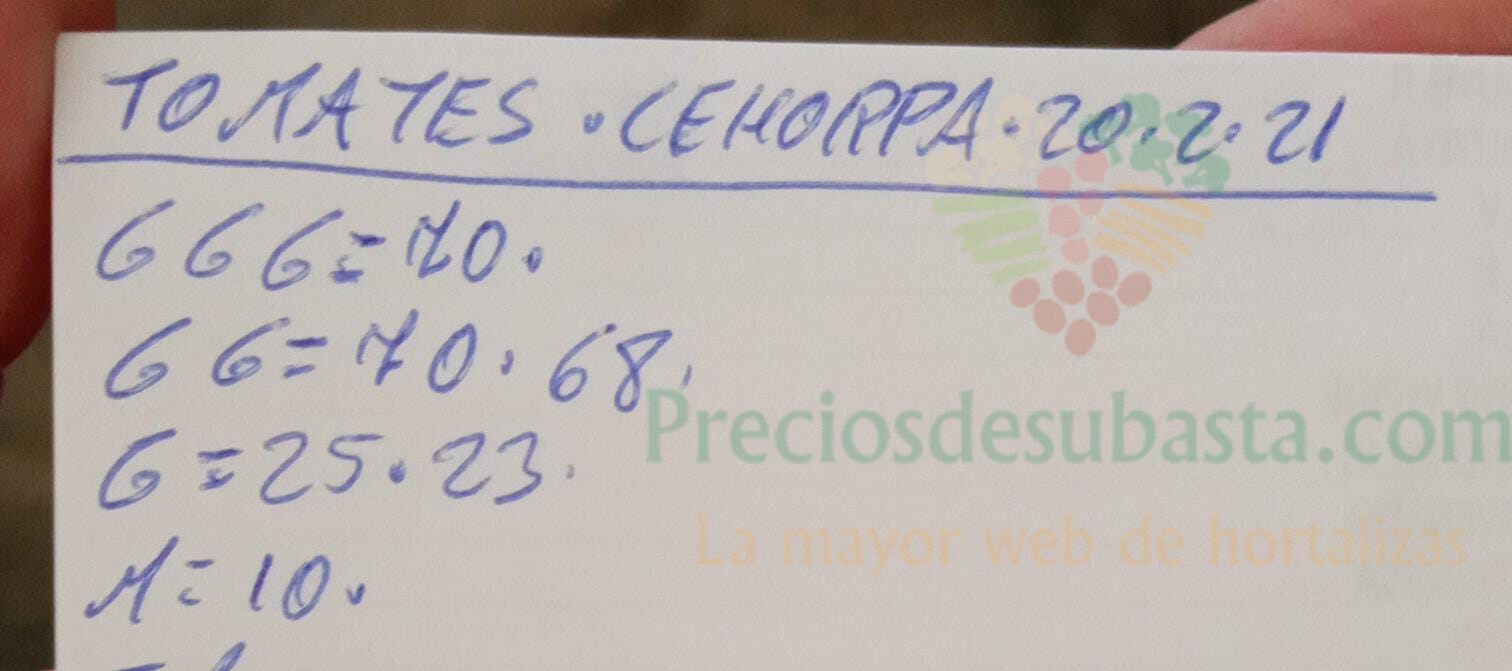 TOMATES · CEHORPA · 20 · 2 · 21
GGG = 70.
GG = 70. 68.
G = 25. 23.
M = 10.
Preciosdesubasta.com
La mayor web de hortalizas